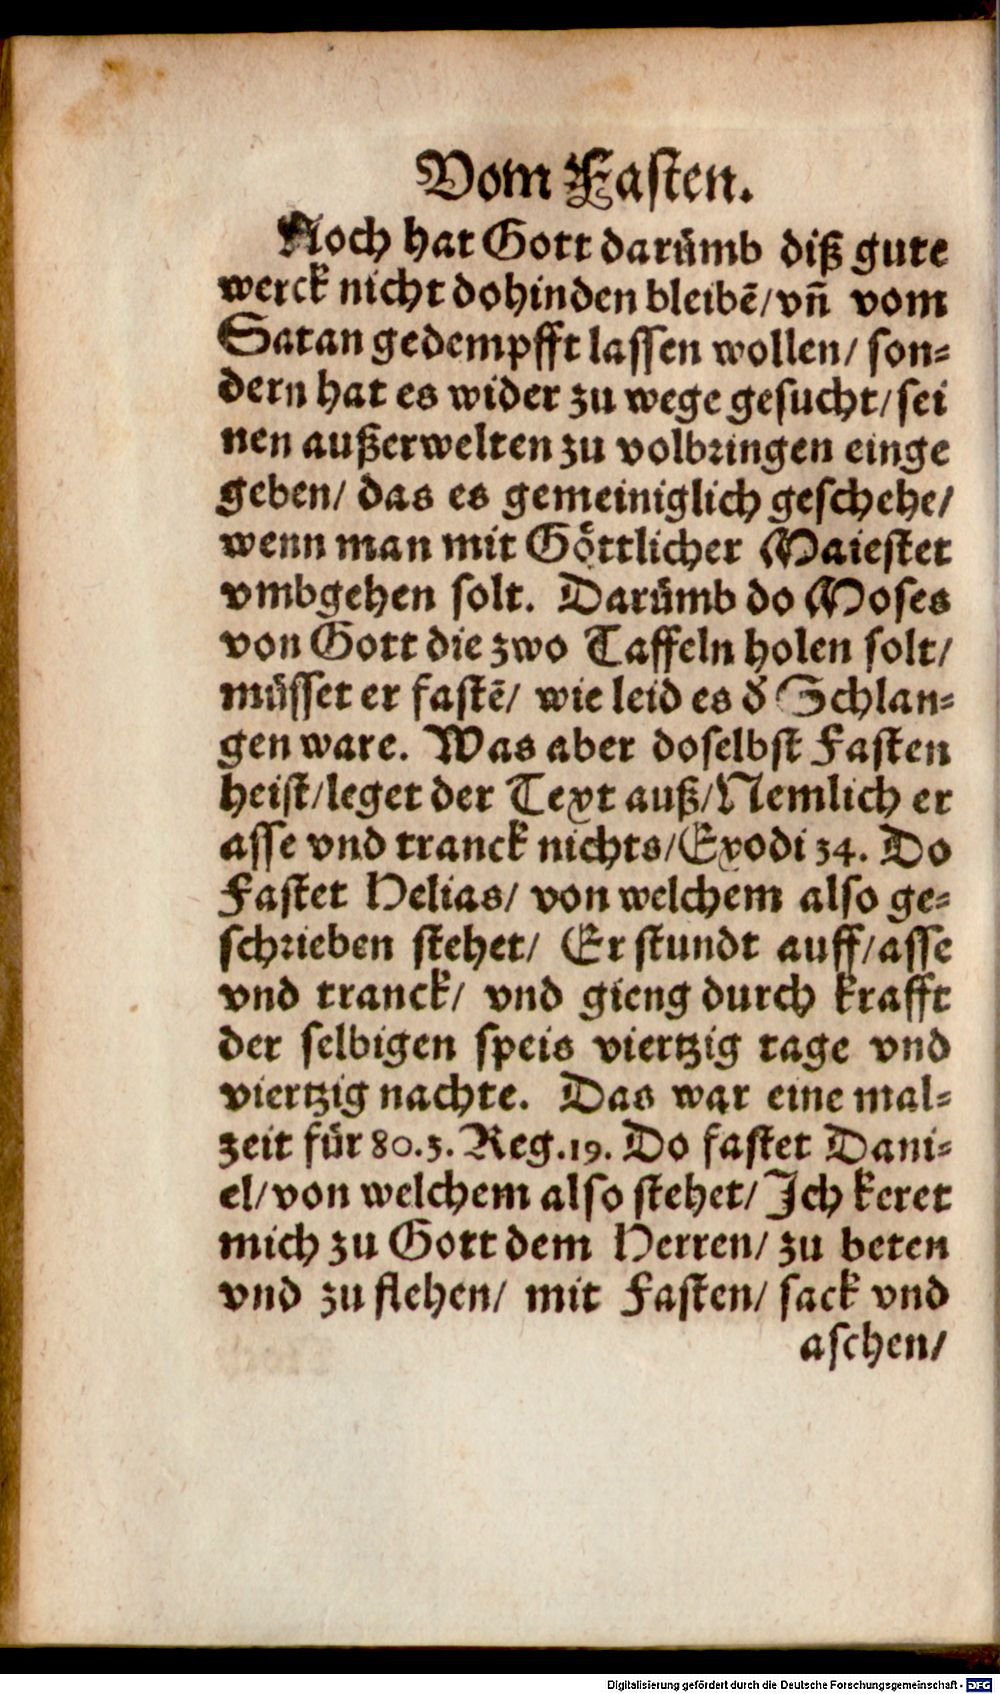 Vom Fasten.
Noch hat Gott darümb diß gute
werck nicht dohinden bleibē/vn̄ vom
Satan gedempfft lassen wollen/ son-
dern hat es wider zu wege gesucht/sei
nen außerwelten zu volbringen einge
geben/ das es gemeiniglich geschehe/
wenn man mit Göttlicher Maiestet
vmbgehen solt. Darümb do Moses
von Gott die zwo Taffeln holen solt/
müsset er fastē/ wie leid es d̾ Schlan-
gen ware. Was aber doselbst Fasten
heist/leget der Text auß/Nemlich er
asse vnd tranck nichts/Exodi 34. Do
Fastet Helias/ von welchem also ge-
schrieben stehet/ Er stundt auff/asse
vnd tranck/ vnd gieng durch krafft
der selbigen speis viertzig tage vnd
viertzig nachte. Das war eine mal-
zeit für 80.3. Reg.19. Do fastet Dani-
el/von welchem also stehet/Ich keret
mich zu Gott dem Herren/ zu beten
vnd zu flehen/ mit Fasten/ sack vnd
aschen/
Digitalisierung gefördert durch die Deutsche Forschungsgemeinschaft - DFG